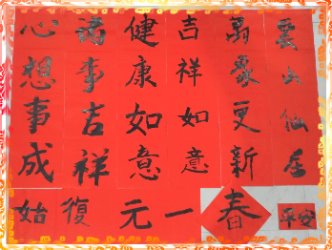 仙居
萬象更新
吉祥如意
健康如意
諸事吉祥
心想事成
平安
春
一元復始